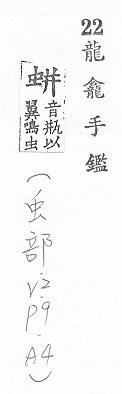 22龍龕手鑑
蛢
音瓶以
翼鳴虫
(虫部.V2.P9.A4)